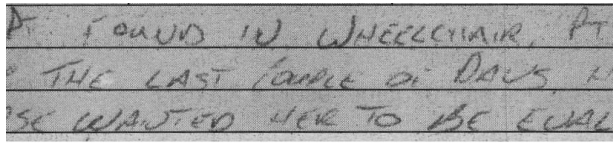 PT FOUND IN WHEELCHAIR, PT
THE LAST COUPLE OF DAYS, H
SE WANTED HER TO BE EVAL